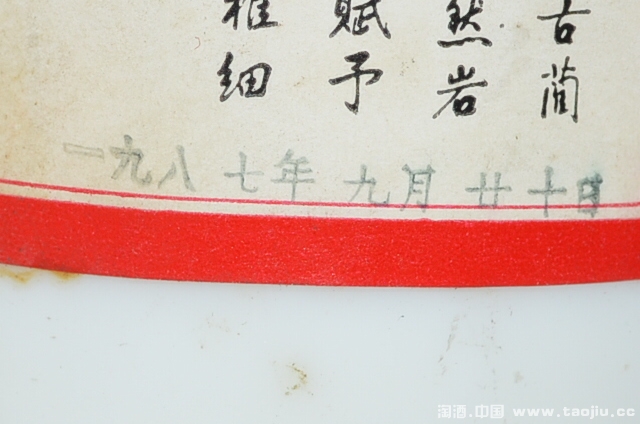 古蔺
然岩
赋予
雅细
一九八七年九月廿十日
淘酒.中国 www.taojiu.cc